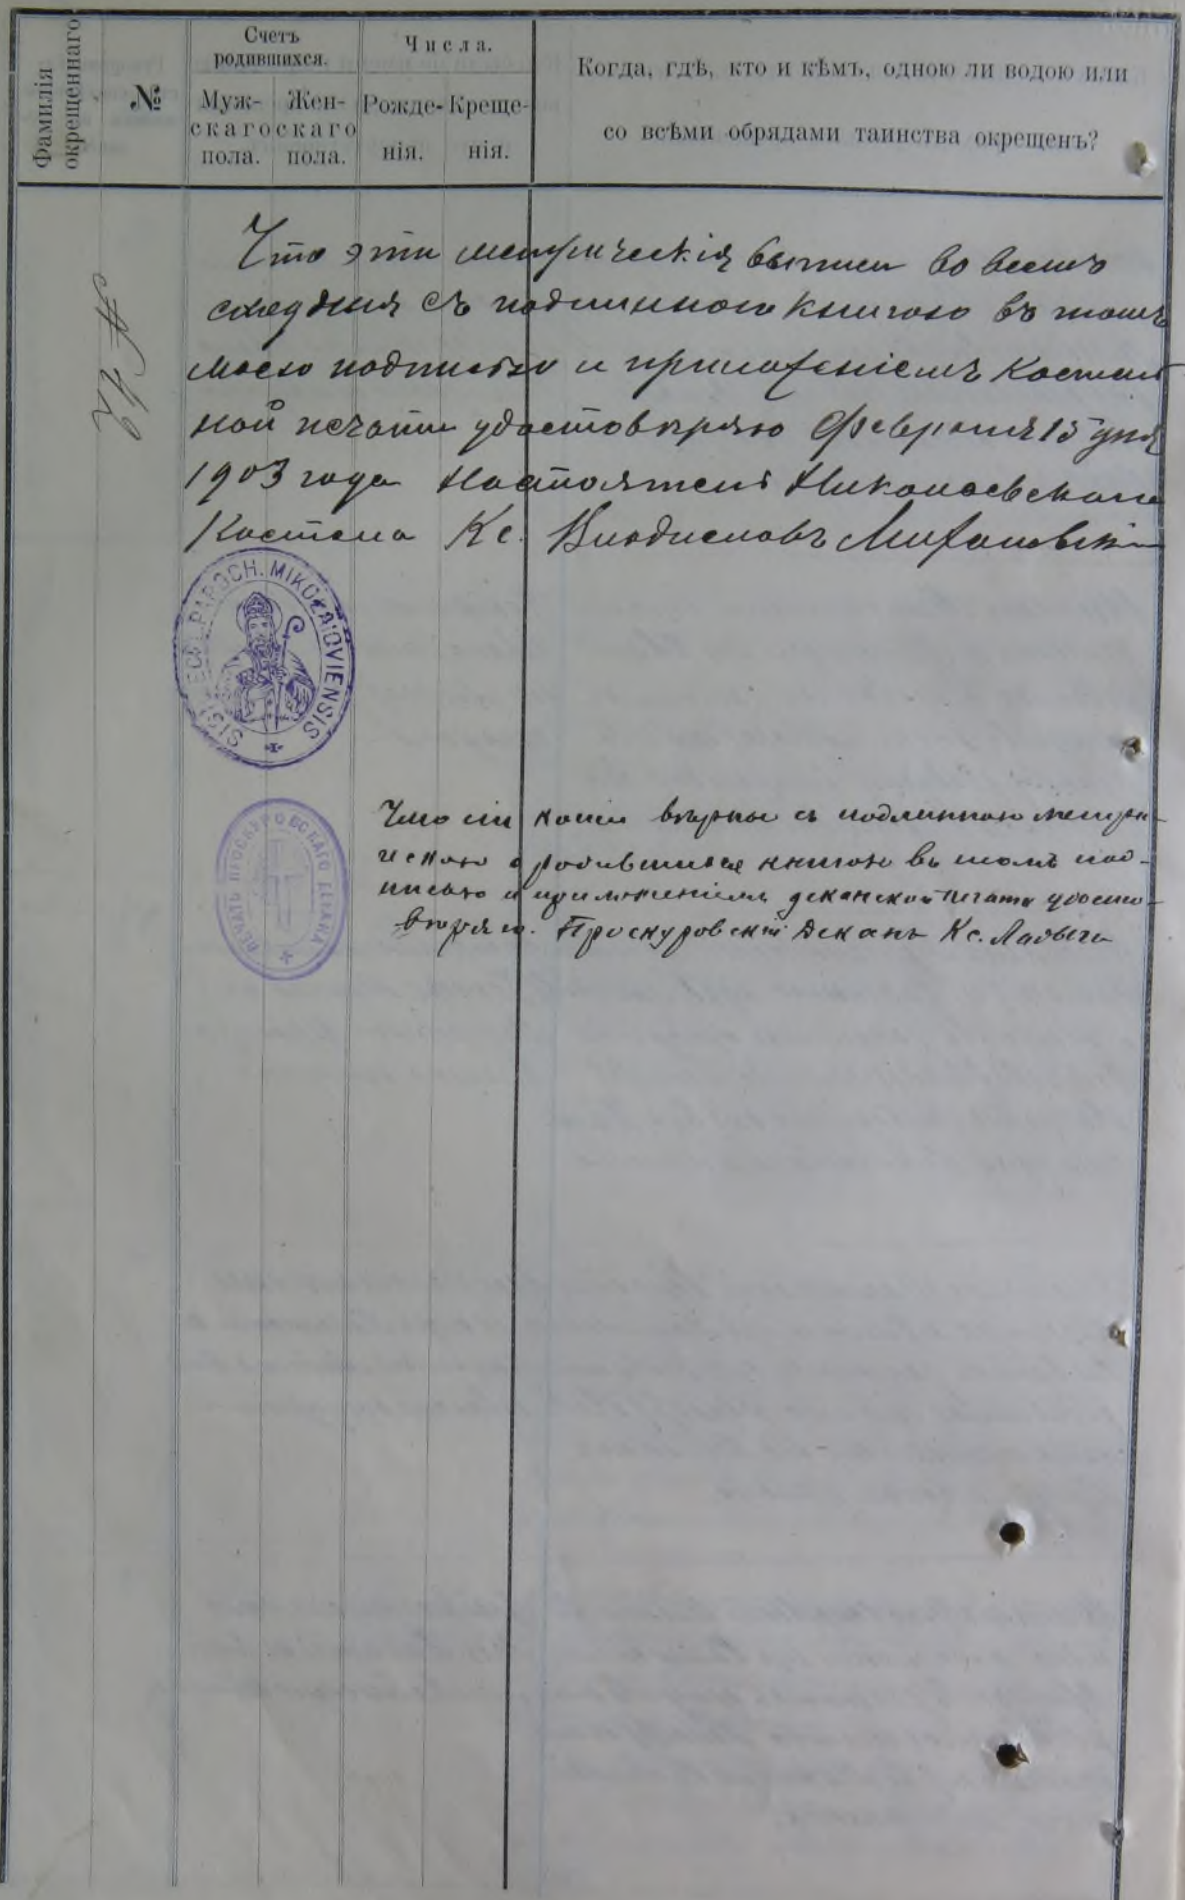 Фамилія
окрещеннаго
№
Счетъ
родившихся.
Муж-
скаго
пола.
Жен-
скаго
пола.
Числа.
Рожде-
нія.
Креще-
нія.
Когда, гдѣ, кто и кѣмъ, одною ли водою или
со всѣми обрядами таинства окрещенъ?
Что эти метрическія выписи во всемъ
сходныя съ подлинною книгою въ томъ
моею подписью и приложеніемъ костель
ной печати удостовѣряю Февраля 15 дня
1903 года Настоятель Николаевскаго
Костела Кс. Владиславъ
SIGIL. ECCL. PAROCH. MIKOŁAIOVIENSIS
Что сіи копіи вѣрны съ подлинною метри-
ческою о родившихся книгою въ томъ под-
писью и приложеніемъ деканской печати удосто-
вѣряю. Проскуровскій Деканъ Кс.
ПЕЧАТЬ ПРОСКУРОВСКАГО ДЕКАНА